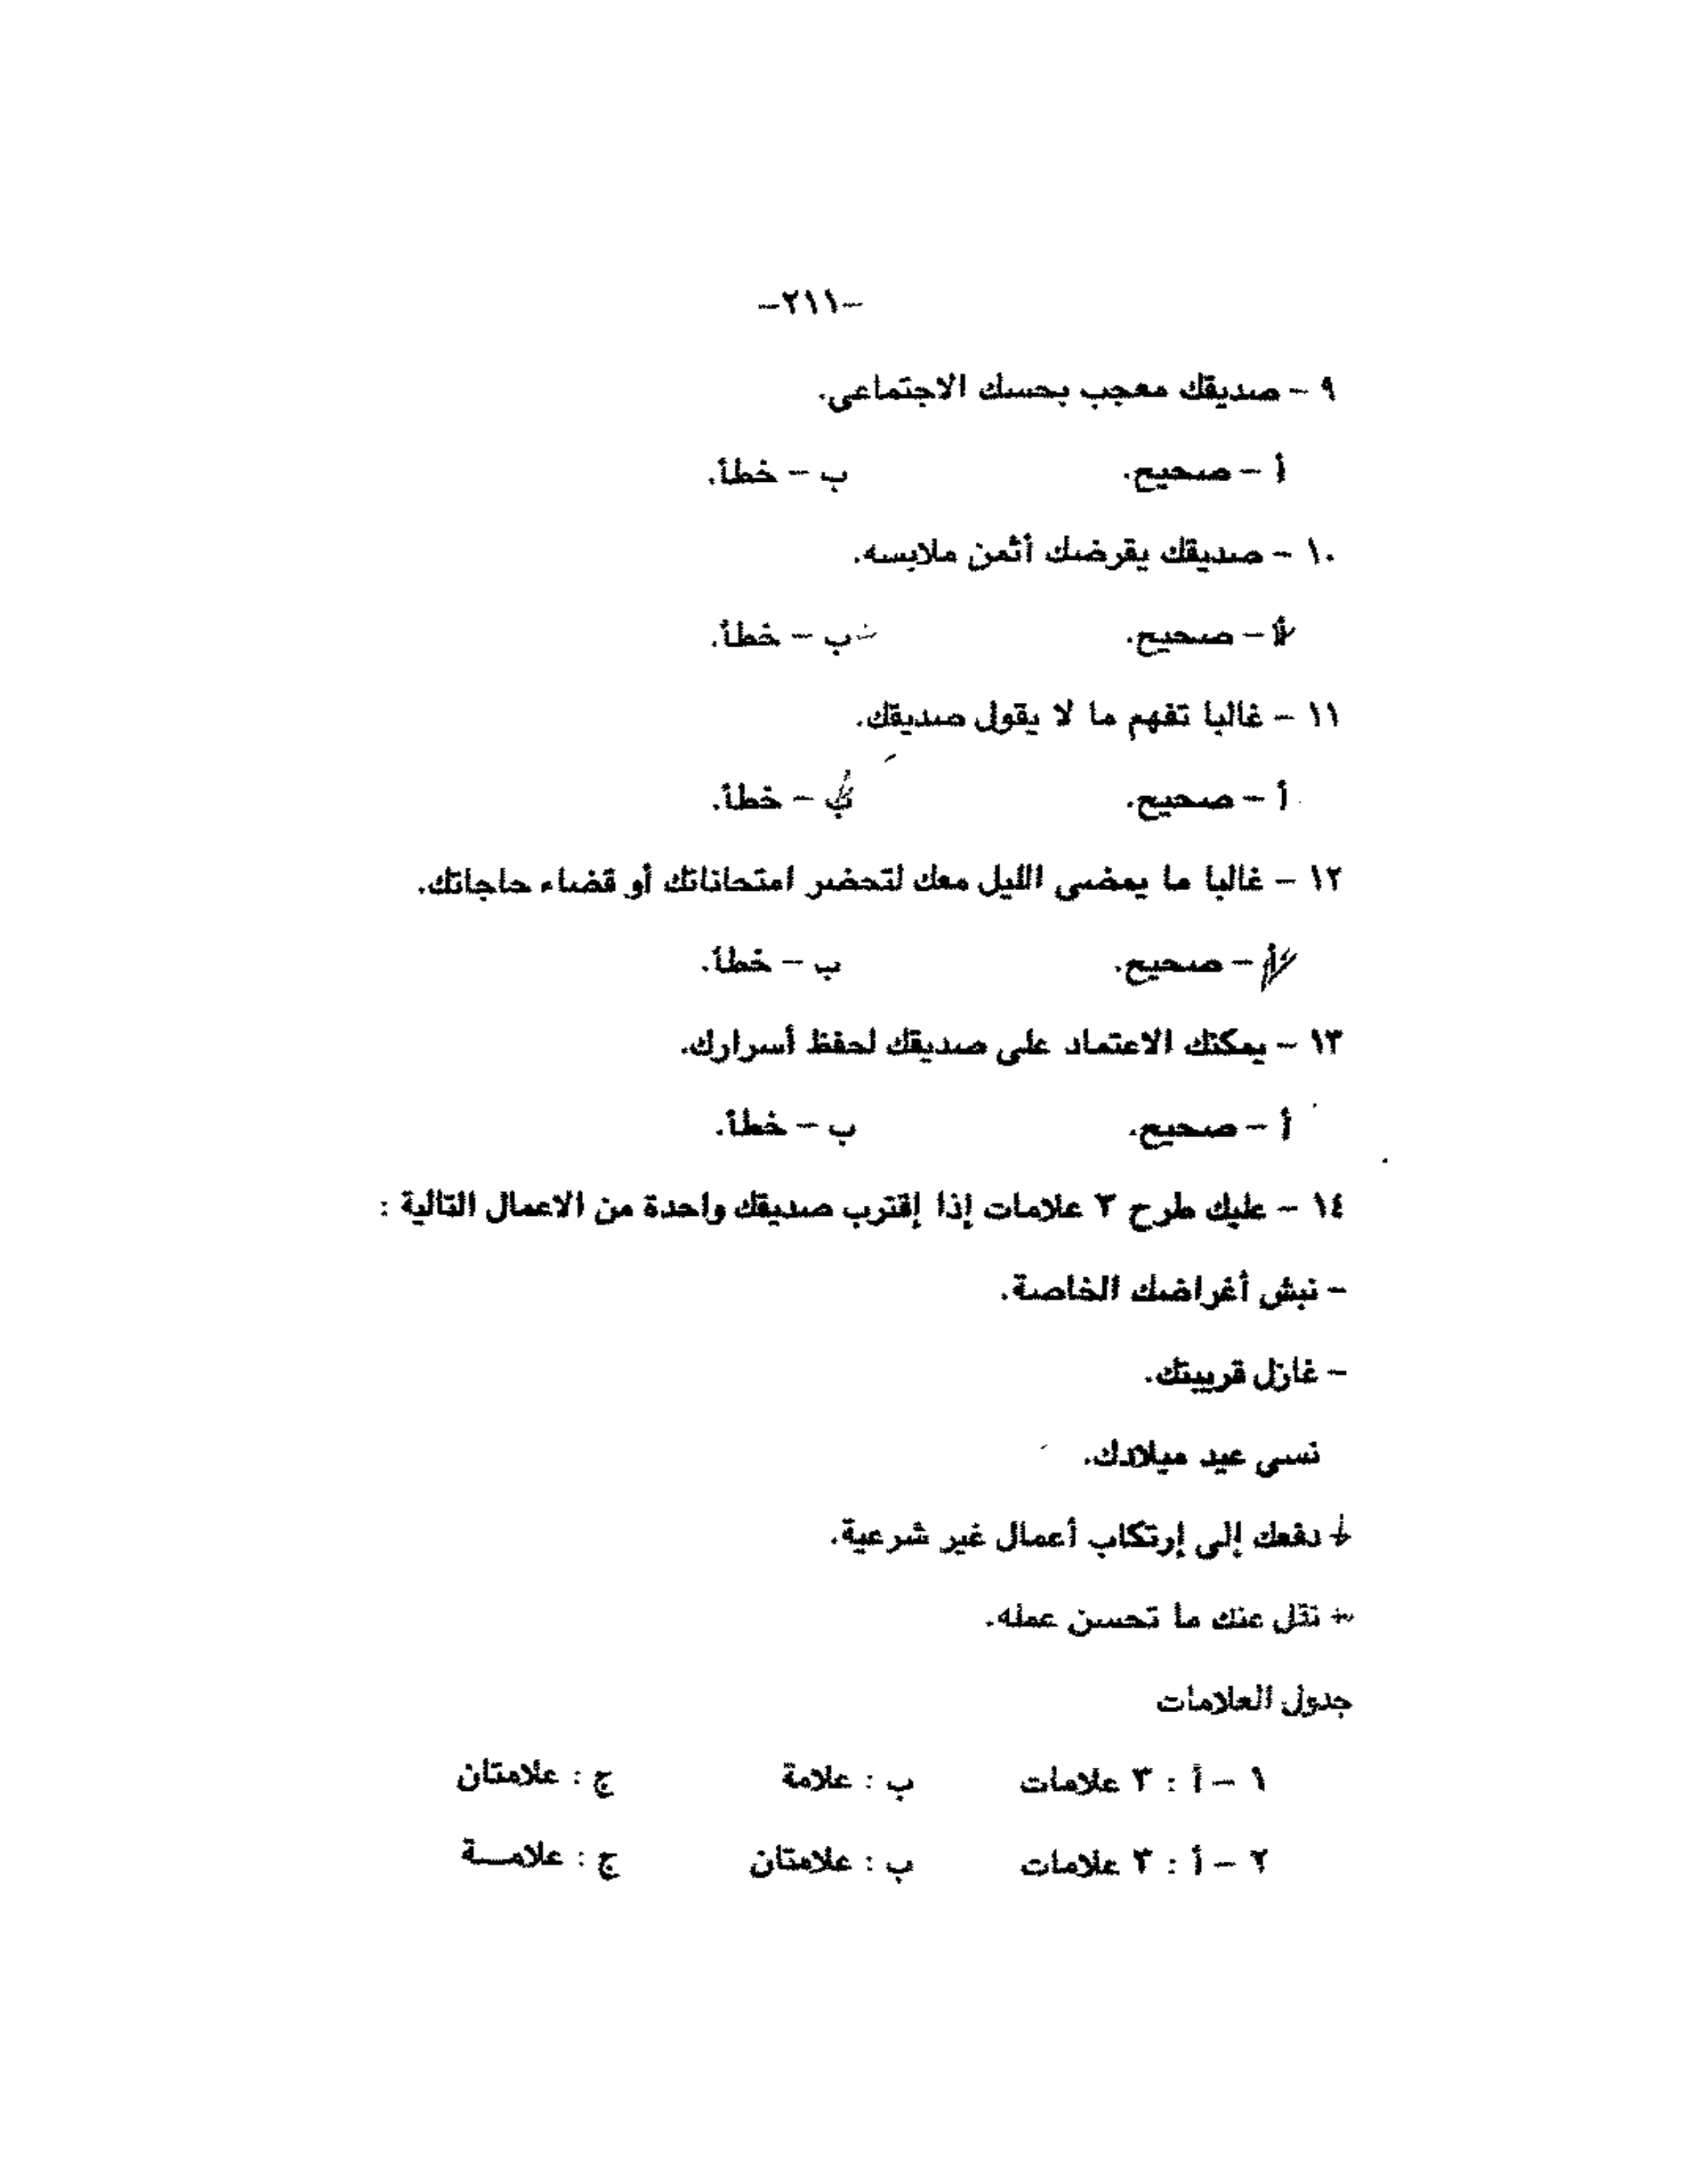 -٢١١-
٩ - صديقك معجب بحسك الاجتماعى.
أ - صحيح. ب - خطأ.
١٠ - صديقك يقرضك أثمن ملابسه.
أ - صحيح. ب - خطأ.
١١ - غالبا تفهم ما لا يقول صديقك.
أ - صحيح. ب - خطأ.
١٢ - غالبا ما يمضى الليل معك لتحضر امتحاناتك أو قضاء حاجاتك.
أ - صحيح. ب - خطأ.
١٣ - يمكنك الاعتماد على صديقك لحفظ أسرارك.
أ - صحيح. ب - خطأ.
١٤ - عليك طرح ٣ علامات إذا إقترب صديقك واحدة من الاعمال التالية :
- نبش أغراضك الخاصة.
- غازل قريبتك.
نسى عيد ميلادك.
- دفعك إلى إرتكاب أعمال غير شرعية.
- نقل عنك ما تحسن عمله.
جدول العلامات
١ - أ : ٣ علامات ب : علامة ج : علامتان
٢ - أ : ٣ علامات ب : علامتان ج : علامـــة